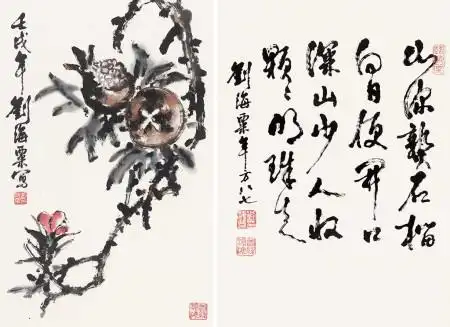 壬戌年劉海粟寫
山深熟石榴
向日便開口
深山少人收
顆〻明珠走
劉海粟年方八七